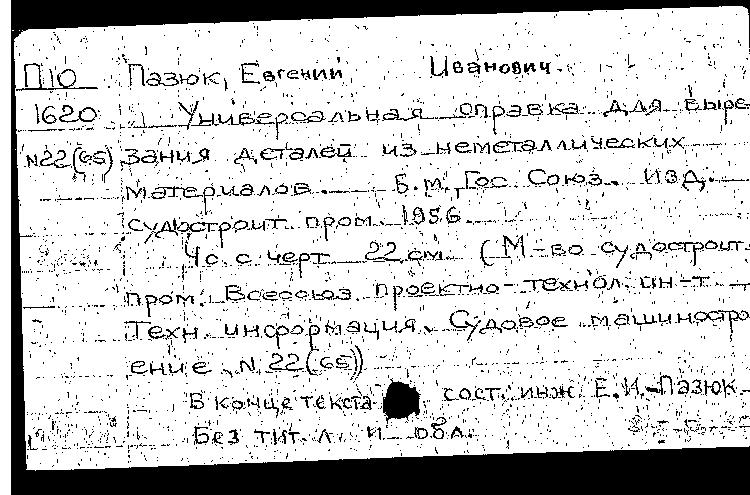 П10 Пазюк, Евгений Иванович.
1620 Универсальная оправка для выре
N22(65) зания деталей из неметаллических
материалов. — Б.м., Гос. Союз. изд.
судостроит. пром. 1956.
4 с. с черт 22 см. (М-во судостроит.
пром. Всесоюз. проектно-технол. ин-т
Техн. информация. Судовое машиностро
ение, N 22(65))
В конце текста сост. инж. Е.И. Пазюк
Без тит. л. и обл.